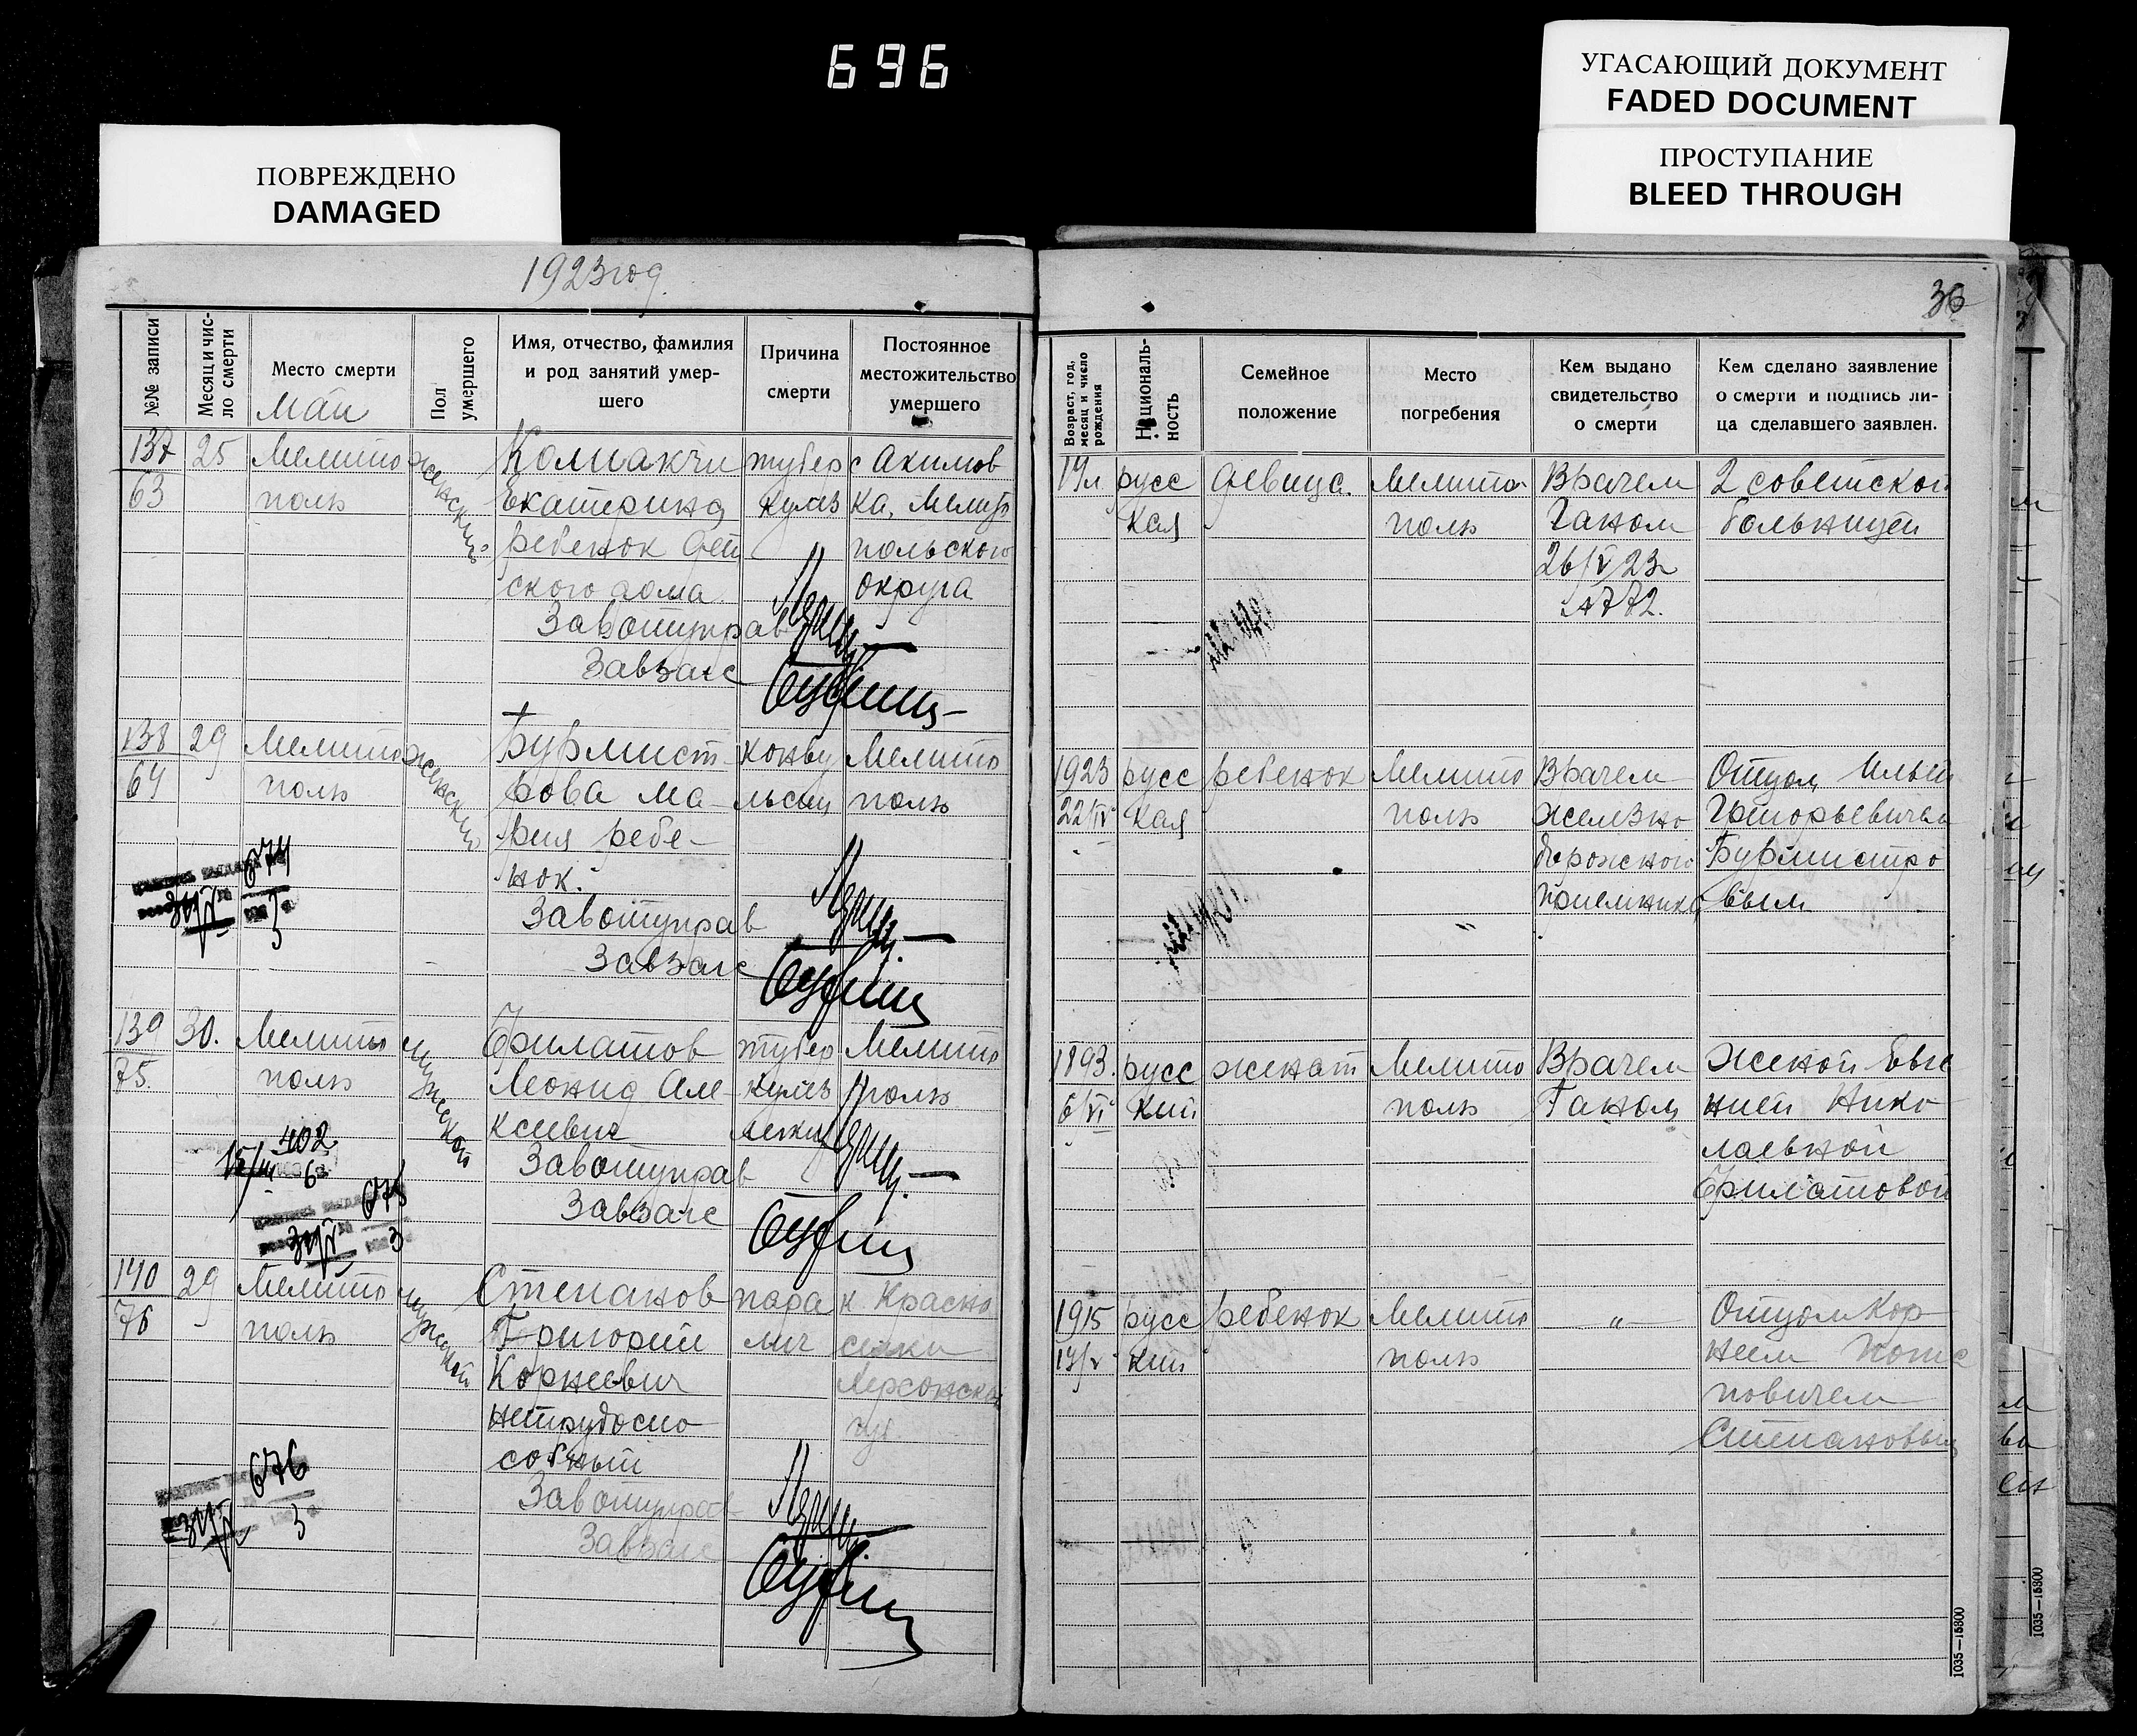 696
УГАСАЮЩИЙ ДОКУМЕНТ
FADED DOCUMENT
ПРОСТУПАНИЕ
BLEED THROUGH
ПОВРЕЖДЕНО
DAMAGED
1923 год.
36
№№ записи
Месяц и чис-
ло смерти
Место смерти
Май
Пол
умершего
Имя, отчество, фамилия
и род занятий умер-
шего
Причина
смерти
Постоянное
местожительство
умершего
Возраст, год,
месяц и число
рождения
Националь-
ность
Семейное
положение
Место
погребения
Кем выдано
свидетельство
о смерти
Кем сделано заявление
о смерти и подпись ли-
ца сделавшего заявлен.
137
63
25
Мелито
поль
женский
Колпакчи
Екатерина
ребенок дет
ского дома
Завотуправ
Завзагс
тубер
кулез
с Акимов
ка, Мелито
польского
округа
19 л
русс
кая
девица.
Мелито
поль
Врачем
Ганом
26/V 23 г
№ 772.
2 советской
больницей
138
64
29
Мелито
поль
женский
Бурмист
рова Ма-
рия ребе-
нок.
Завотуправ
Завзагс
конву
льсии
Мелито
поль
1923
22/IV
русс
кая
ребенок
Мелито
поль
Врачем
железно
дорожного
приемника
Отцом Ильей
Григорьевичем
Бурмистро
вым
674
3
139
75.
30.
Мелито
поль
мужской
Филатов
Леонид Але-
ксеевич
Завотуправ
Завзагс
тубер
кулез
легких
Мелито
поль
1893.
6/VI
русс
кий
женат
Мелито
поль
Врачем
Ганом
Женой Евге
нией Нико
лаевной
Филатовой
402
675
3
140
76
29
Мелито
поль
мужской
Степанов
Григорий
Корнеевич
нетрудоспо
собный
Завотуправ
Завзагс
пара
лич
к Красно
сельки
Херсонской
губ.
1915
русс
кий
ребенок
Мелито
поль
—〃—
Отцом Кор
неем
повичем
Степановым
676
3
1035—15800
1035—15800